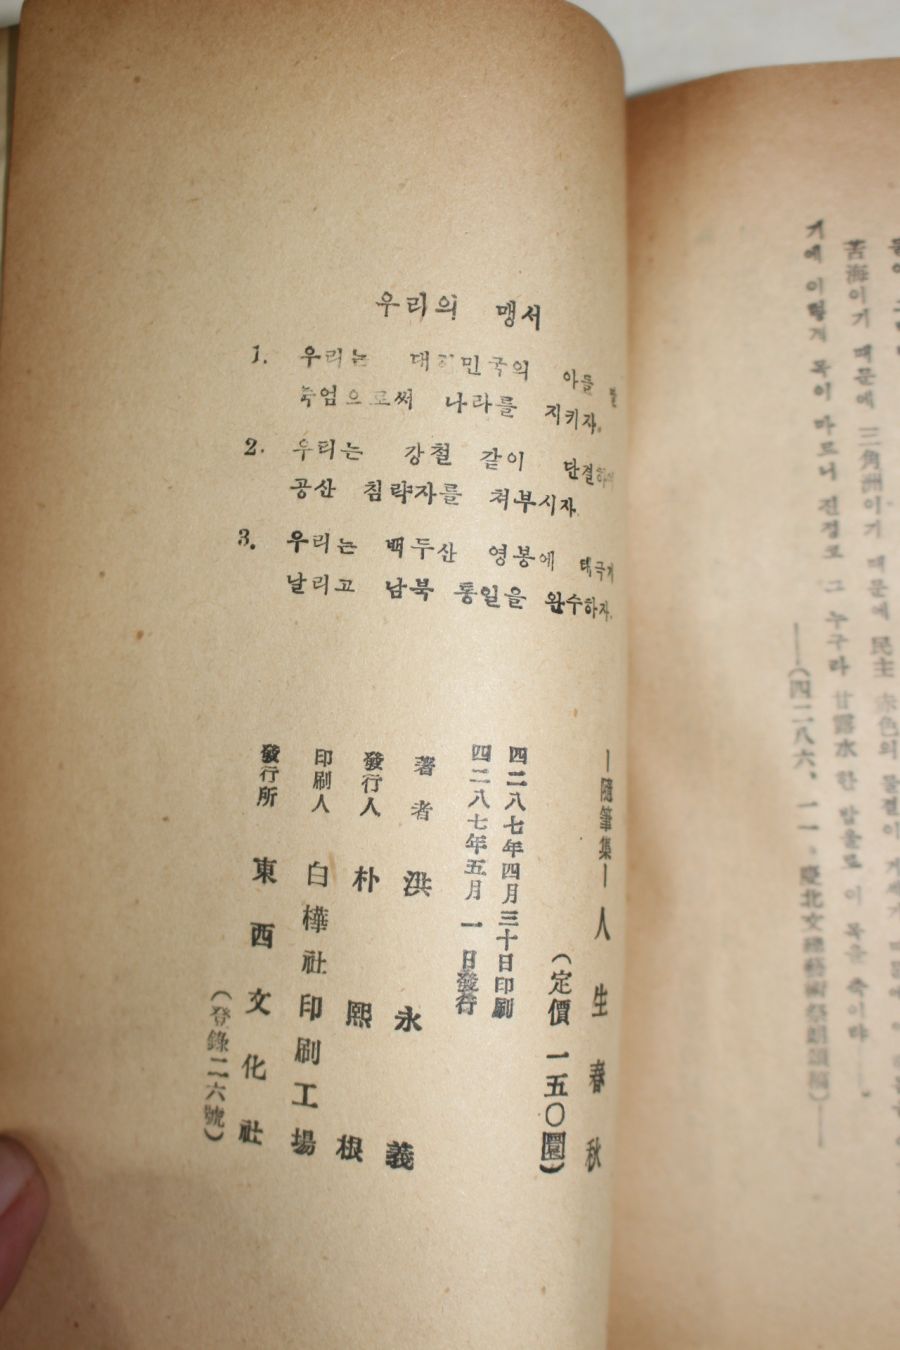 우리의 맹서
1. 우리는 대한민국의 아들
죽엄으로써 나라를 지키자.
2. 우리는 강철 같이 단결하여
공산 침략자를 쳐부시자.
3. 우리는 백두산 영봉에 태극기
날리고 남북 통일을 완수하자.
—隨筆集— 人生春秋
(定價 一五〇圜)
四二八七年四月三十日印刷
四二八七年五月 一日發行
著者 洪永義
發行人 朴熙根
印刷人 白樺社印刷工場
發行所 東西文化社
(登錄二六號)
苦海이기 때문에 三角洲이기 때문에 民主 赤色의 물결이
기에 이렇게 목이 마르니 진정코 그 누구라 甘露水 한 방울로 이 목을 축이랴
——(四二八六、一一、慶北文總藝術祭朗頌稿)——